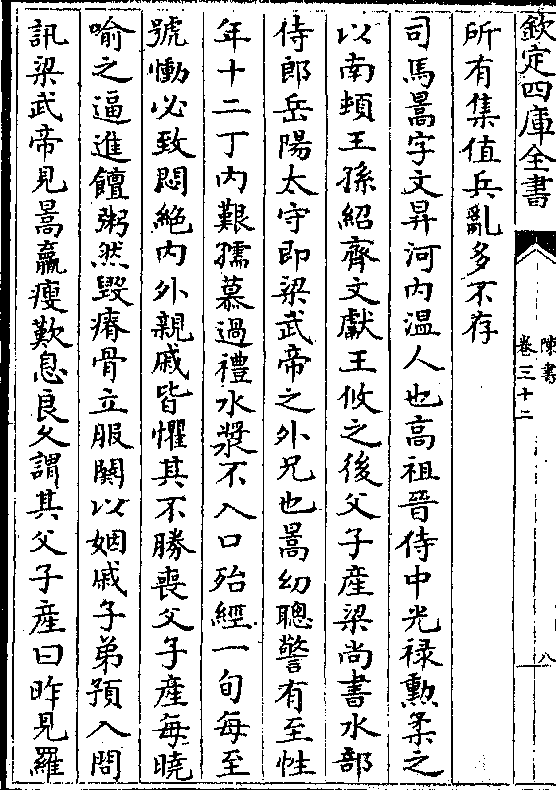 欽定四庫全書
陳書
卷三十二
八
所有集值兵亂多不存
司馬暠字文昇河内温人也高祖晉侍中光禄勲柔之
以南頓王孫紹齊文獻王攸之後父子產梁尚書水部
侍郎岳陽太守即梁武帝之外兄也暠幼聰警有至性
年十二丁内艱孺慕過禮水漿不入口殆經一旬每至
號慟必致悶絶内外親戚皆懼其不勝喪父子產每曉
喻之逼進饘粥然毀瘠骨立服闋以姻戚子弟預入問
訊梁武帝見暠羸瘦歎息良久謂其父子產曰昨見羅